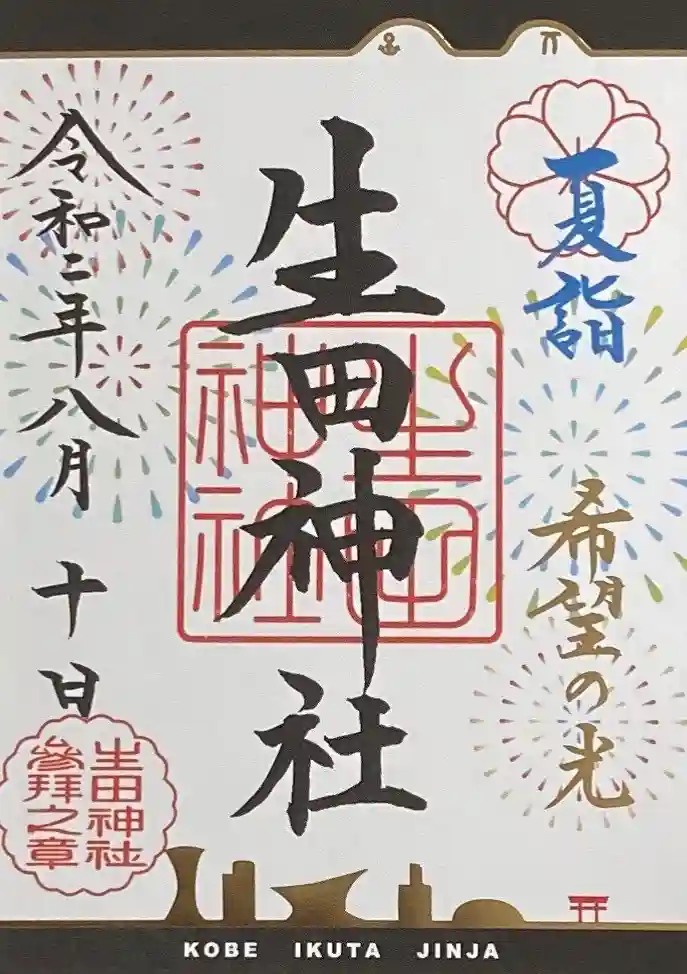 夏詣
希望の光
生田神社
生田神社
令和二年八月十日
生田神社
參拜之章
KOBE IKUTA JINJA